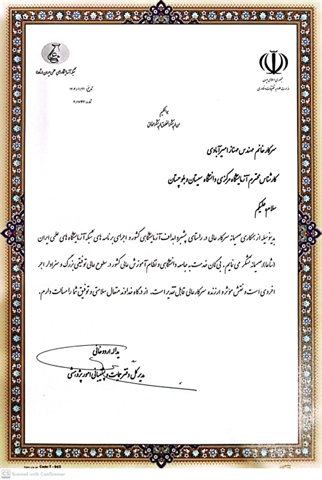 جمهوری اسلامی ایران
وزارت علوم، تحقیقات و فناوری
شبکه آزمایشگاه‌های علمی ایران (شاعا)
تاریخ
شماره
سرکار خانم مهندس مهناز امیرآبادی
کارشناس محترم آزمایشگاه مرکزی دانشگاه سیستان و بلوچستان
سلام علیکم
بدینوسیله از همکاری صمیمانه سرکار عالی در راستای پیشبرد اهداف آزمایشگاهی کشور و اجرای برنامه های شبکه آزمایشگاه های علمی ایران
(شاعا) صمیمانه تشکر می نمایم. بی گمان خدمت به جامعه دانشگاهی و نظام آموزش عالی کشور در سطوح عالی توفیقی بزرگ و سزاوار اجر
اخروی است و نقش مؤثر و ارزنده سرکار عالی قابل تقدیر است. از درگاه خداوند متعال سلامتی و توفیق شما را مسالت دارم.
یداله اردوخانی
مدیر کل دفتر حمایت و پشتیبانی امور پژوهشی
Code T - 063
Scanned with CamScanner